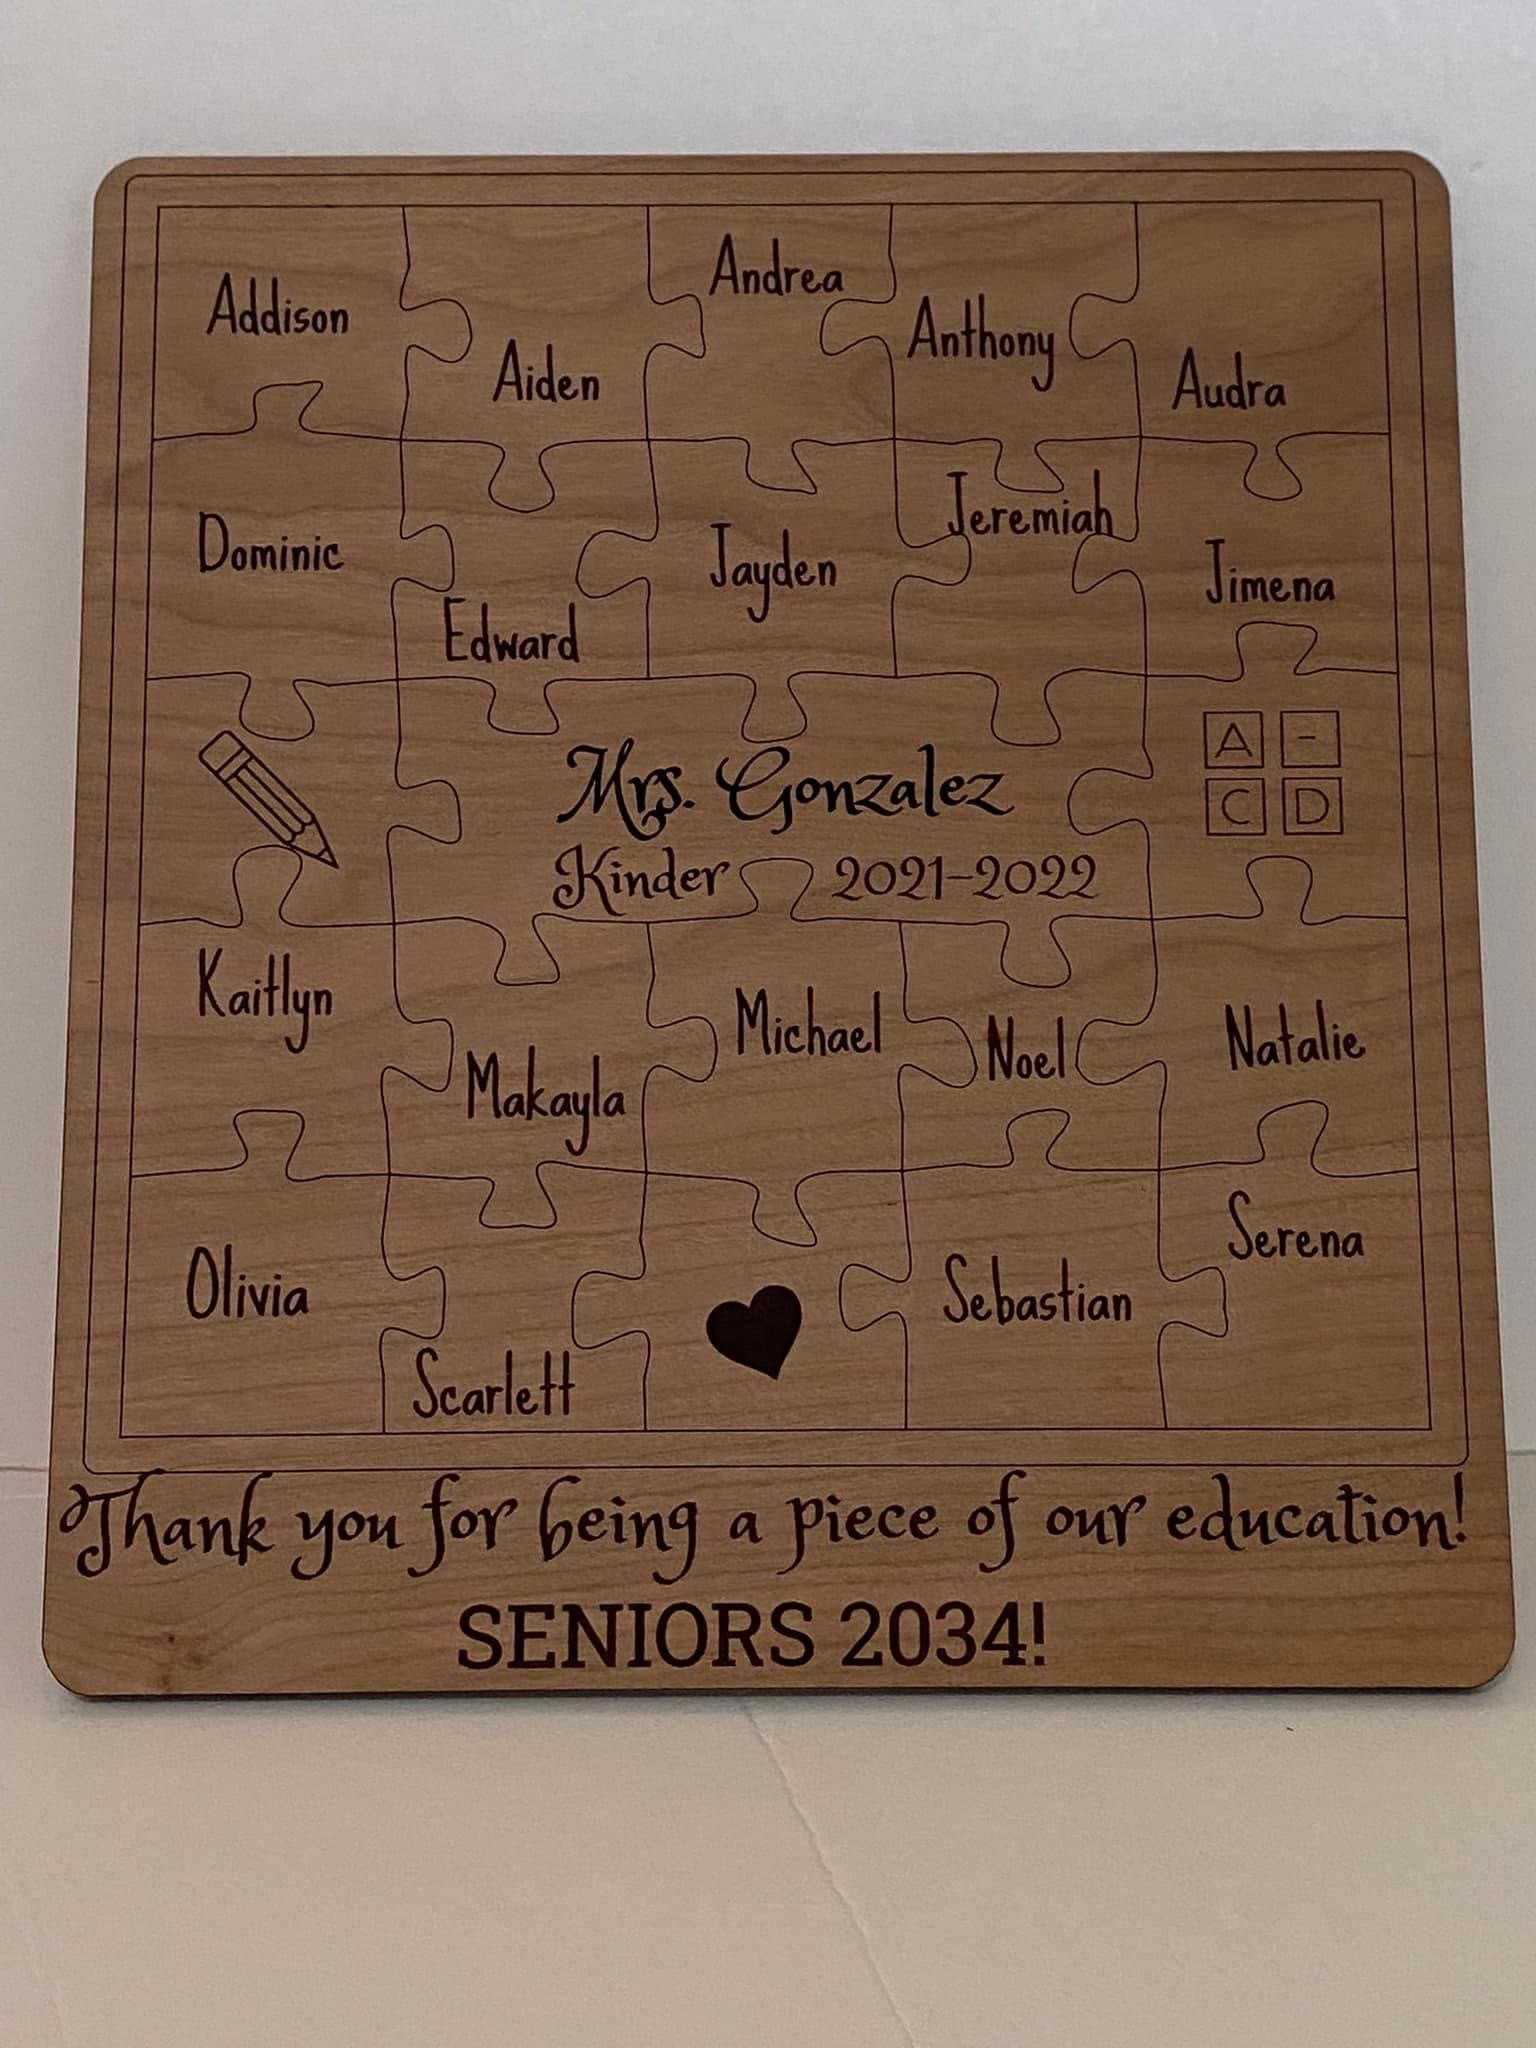 Addison Aiden Andrea Anthony Audra
Dominic Edward Jayden Jeremiah Jimena
Mrs. Gonzalez
Kinder 2021-2022
A -
C D
Kaitlyn Makayla Michael Noel Natalie
Olivia Scarlett Sebastian Serena
Thank you for being a piece of our education!
SENIORS 2034!